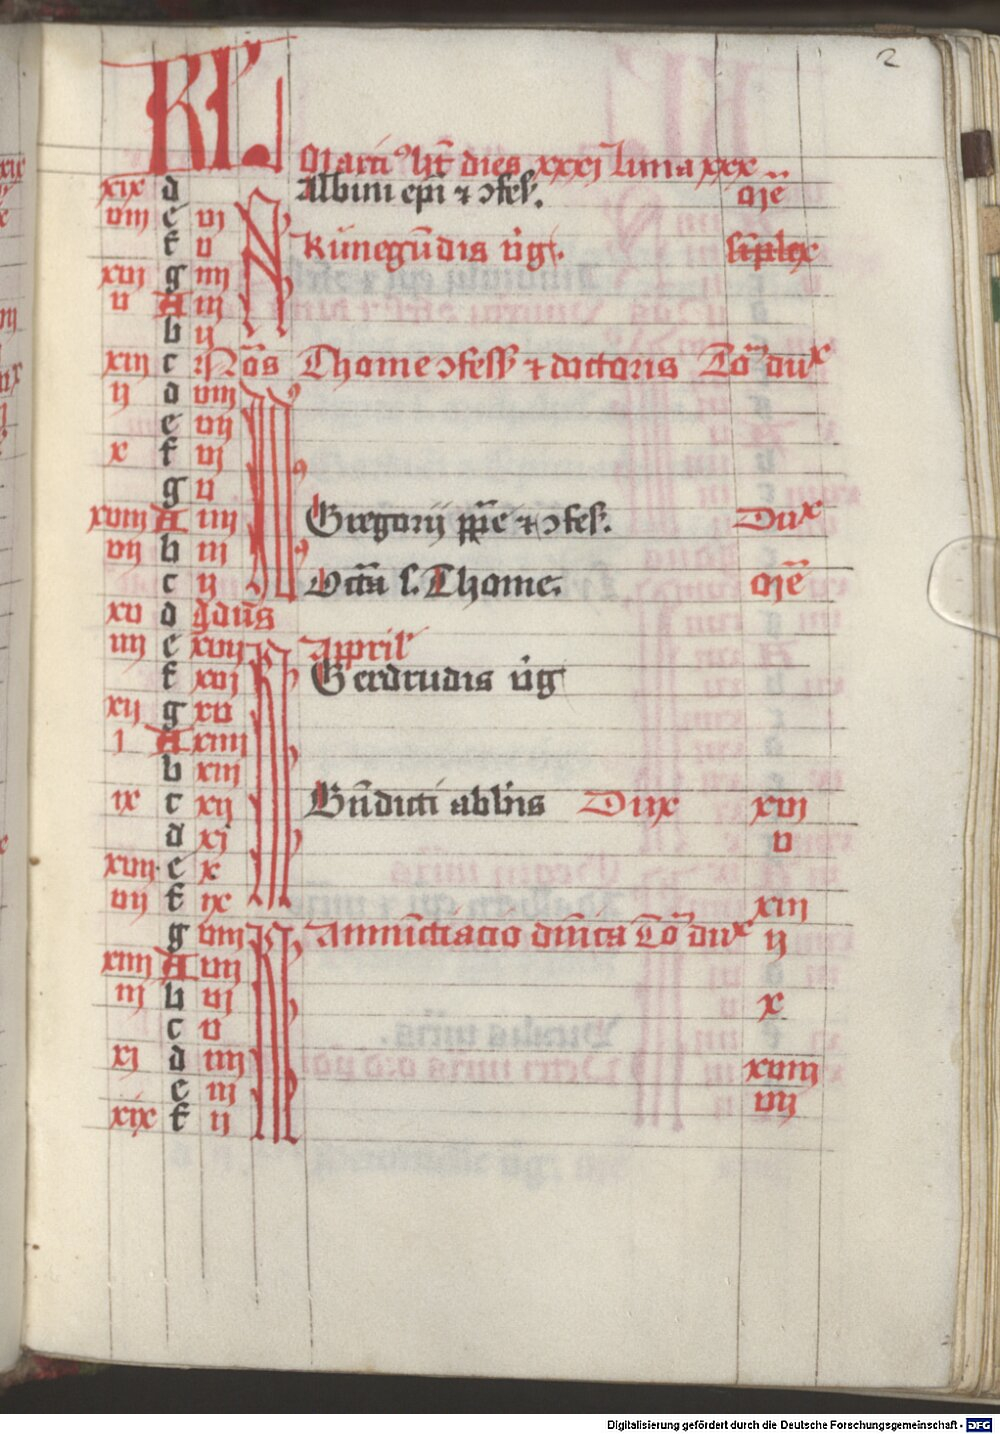 2
KL Marci⁹ hꝫt dies xxxj luna xxx
xix d Albini ep̄i ⁊ ɔfeſ. ɔ̄jē
viij e vj N
f v Kunegūdis v̄ig. simplex
xvj g iiij
v A iij
b ij
xiij c Nōs Thome ɔfeſſ ⁊ doctoris To᷑ dux
ij d viij
e vij
x f vj
g v
xviij A iiij Gregorij pp̄e ⁊ ɔfeſ. Dux
vij b iij
c ij Octā s. Thome. ɔ̄jē
xv d ydus
iiij e xvij K Aprilˀ
f xvj Gerdrudis v̄ig
xij g xv
j A xiiij
b xiij
ix c xij Bn̄dicti abbīs Dux xvj
d xj v
xvij e x
vij f ix xiij
g viij K Annūctiacio dn̄ica To᷑ dux ij
xiiij A vij
iij b vj x
c v
xj d iiij xviij
e iij vij
xix f ij
Digitalisierung gefördert durch die Deutsche Forschungsgemeinschaft - DFG